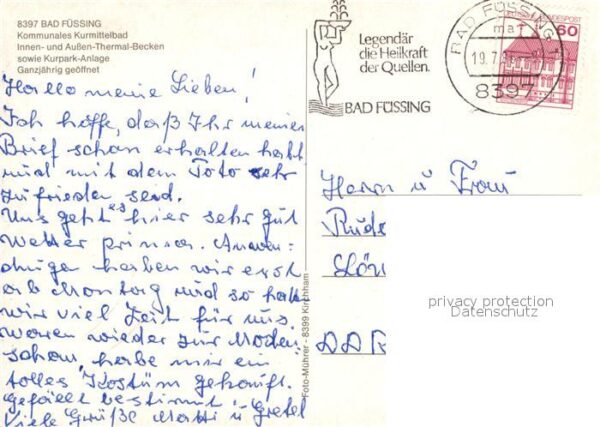 8397 BAD FÜSSING
Kommunales Kurmittelbad
Innen- und Außen-Thermal-Becken
sowie Kurpark-Anlage
Ganzjährig geöffnet
Hallo meine Lieben!
Ich hoffe, daß Ihr meinen
Brief schon erhalten habt
und mit dem Foto sehr
zufrieden seid.
Uns geht es hier sehr gut
Wetter prima. Anwen-
dungen haben wir erst
ab Montag und so hab
wir viel Zeit für uns.
waren wieder zur Moden
schau, habe mir ein
tolles Kostüm gekauft.
Gefällt bestimmt!
Viele Grüße Matti u Gretel
Foto-Mührer - 8399 Kirchham
Legendär
die Heilkraft
der Quellen.
BAD FÜSSING
BAD FÜSSING 1
ma
19.7.
8397
BUNDESPOST
60
Herrn u Frau
DDR
privacy protection
Datenschutz